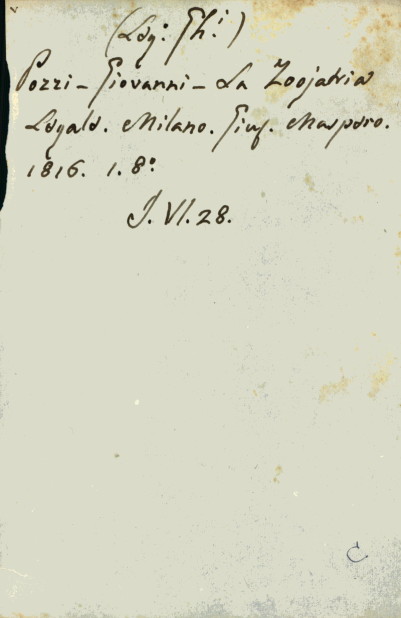 (Leg: Gh.i)
Pozzi - Giovanni - La Zoojatria
Legale. Milano. Gius. Maspero.
1816. 1. 8°
J. VI. 28.
C